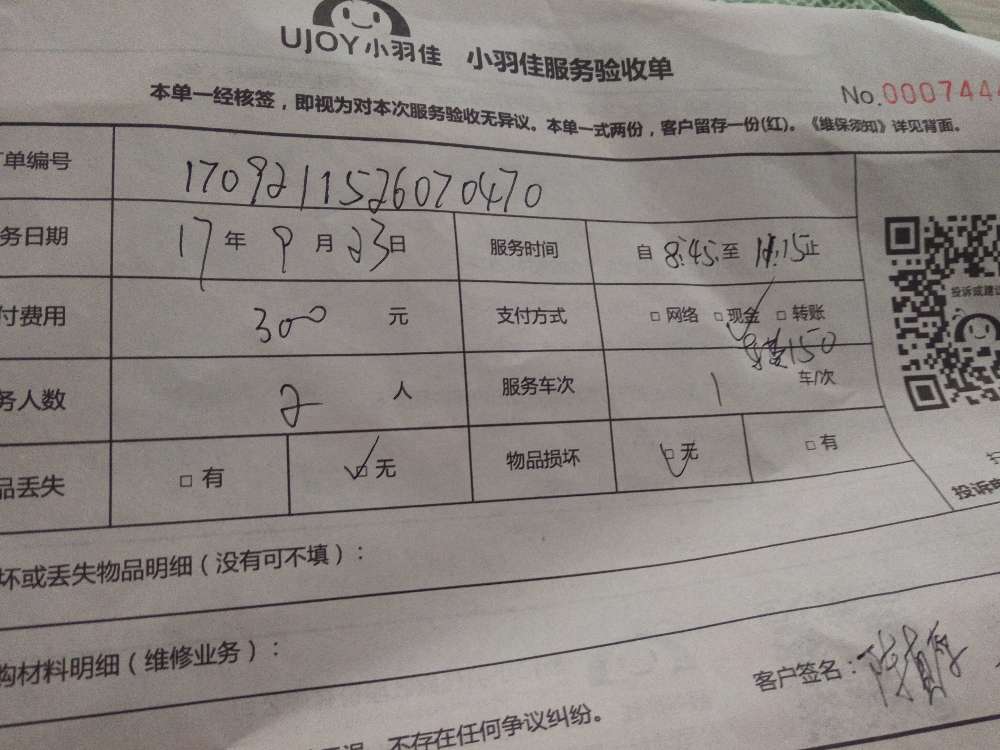 UJOY小羽佳 小羽佳服务验收单
No.0007444
本单一经核签，即视为对本次服务验收无异议。本单一式两份，客户留存一份(红)。《维保须知》详见背面。
单编号 1709211526070470
务日期 17年 9月 23日 服务时间 自 8:45 至 11:15 止
付费用 300 元 支付方式 □ 网络 □ 现金 □ 转账
150
务人数 2 人 服务车次 1 车/次
品丢失 □ 有 □ 无 物品损坏 □ 无 □ 有
投诉或建议
投诉电
坏或丢失物品明细（没有可不填）：
购材料明细（维修业务）：
客户签名：
不存在任何争议纠纷。